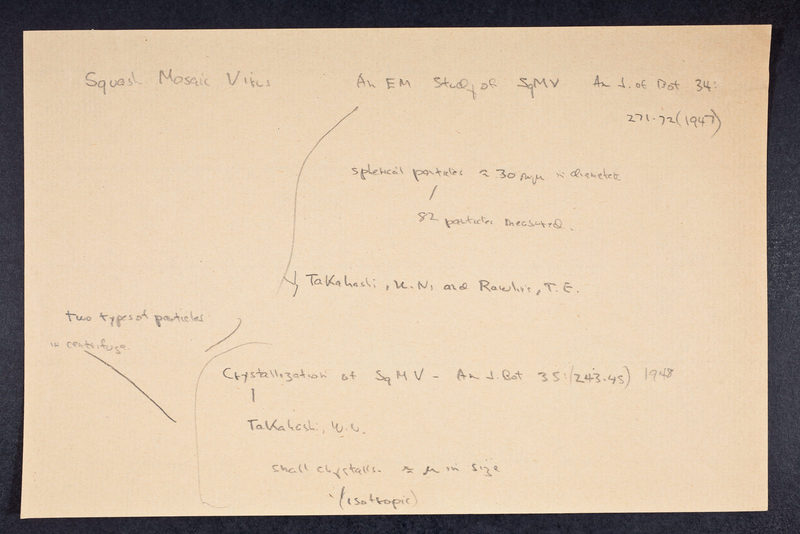 Squash Mosaic Virus
An EM Study of SqMV Am J. of Bot 34:
271-72 (1947)
spherical particles ≈ 30 mμ in diameter
82 particles measured.
Takahashi, W.N. and Rawlins, T.E.
two types of particles
in centrifuge
Crystallization of SqMV - Am J. Bot 35: (243-45) 1948
Takahashi, W.N.
small crystals ≈ μ in size
(isotropic)